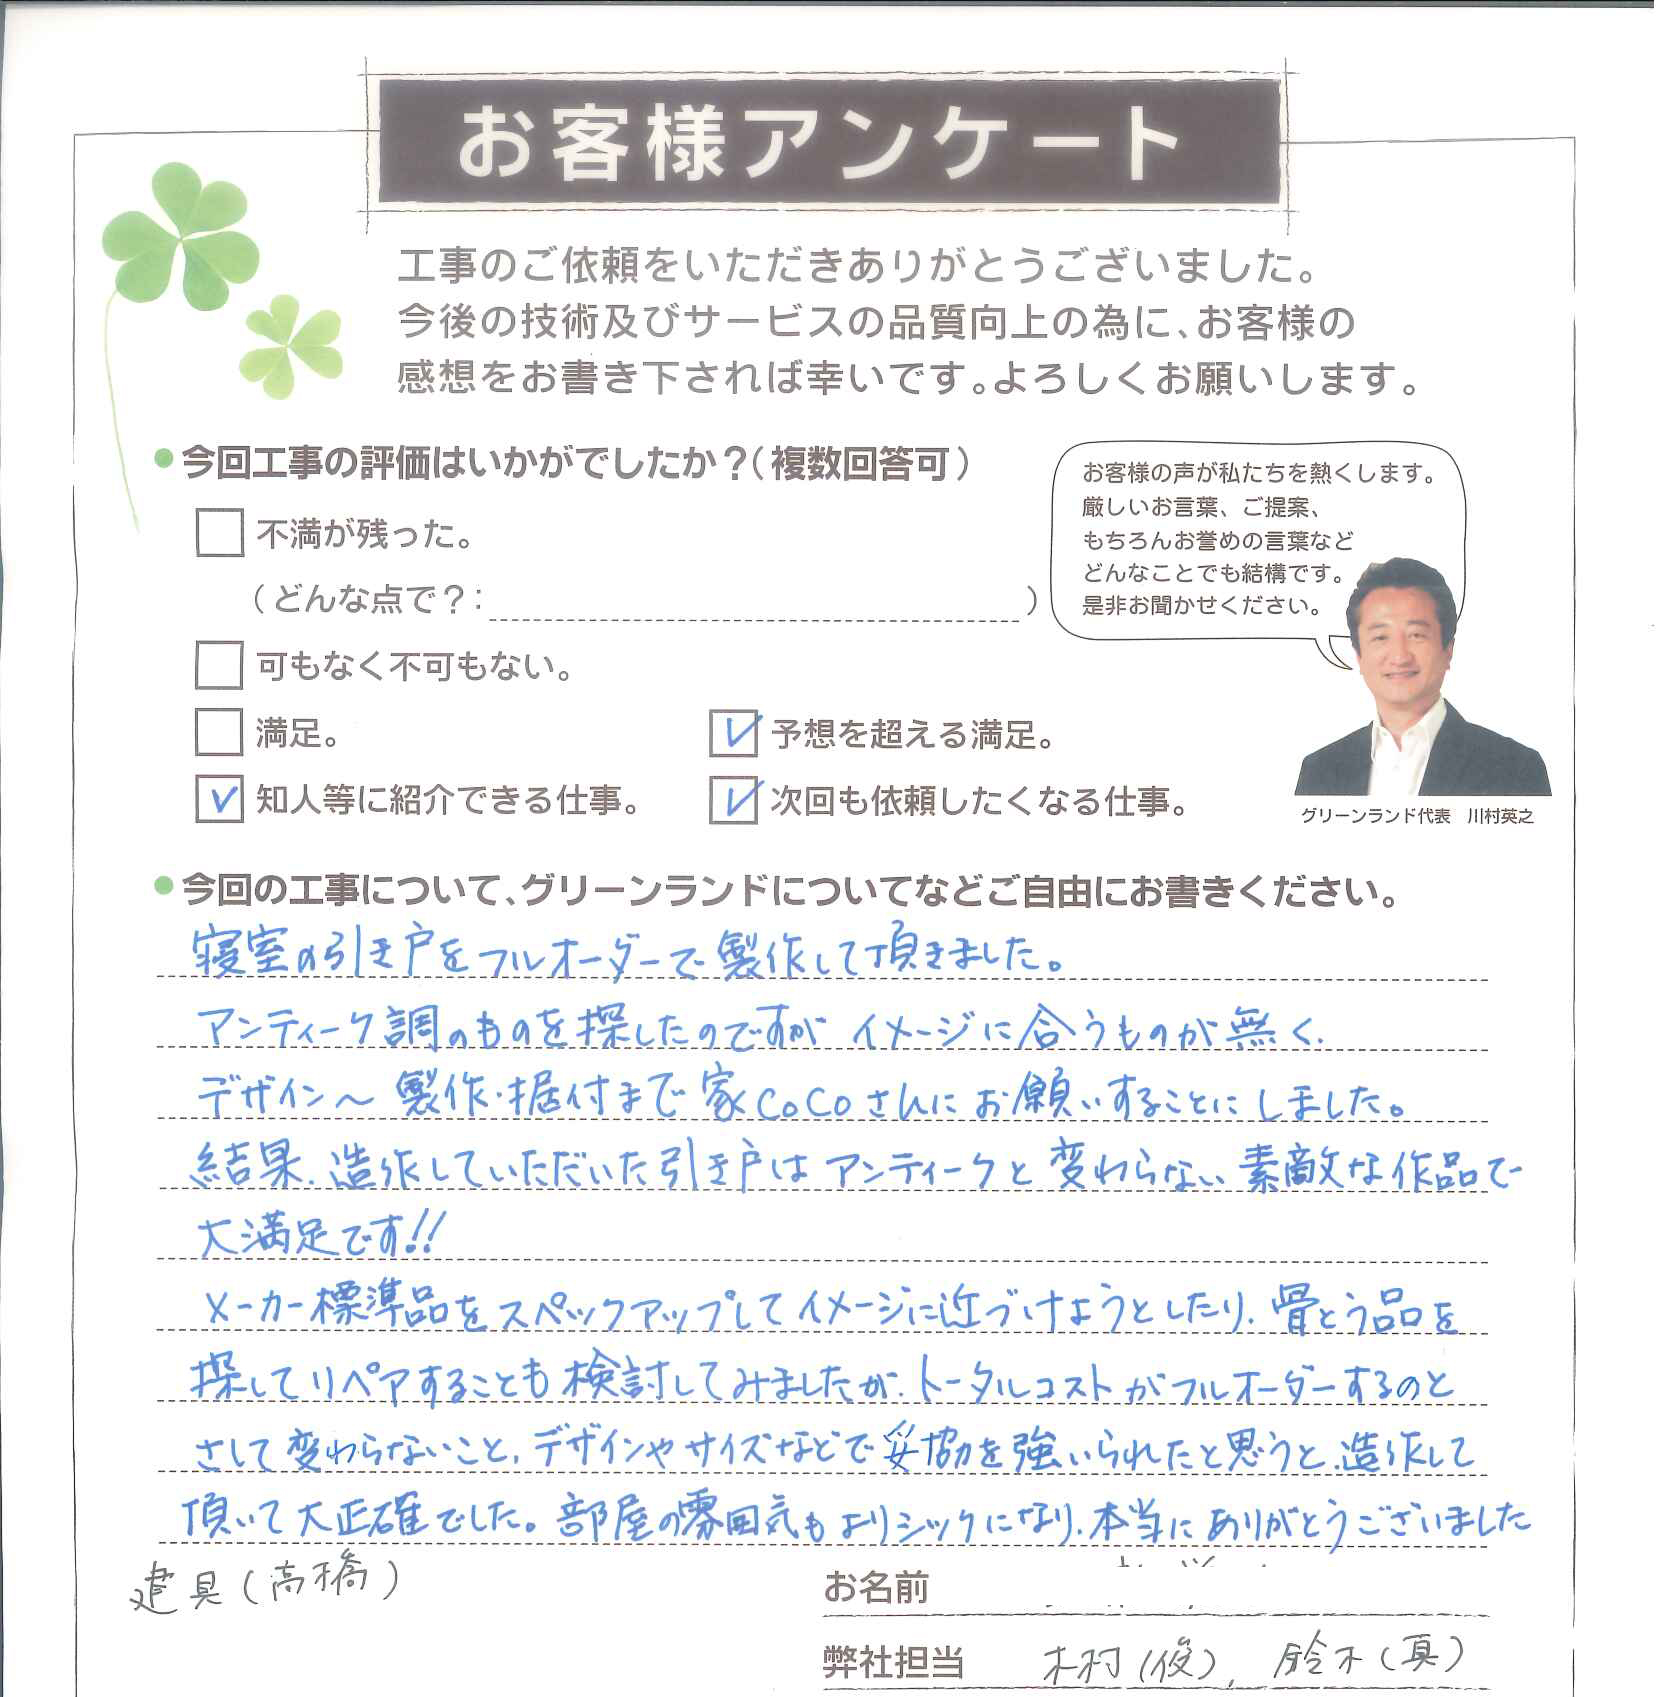 お客様アンケート
工事のご依頼をいただきありがとうございました。
今後の技術及びサービスの品質向上の為に、お客様の
感想をお書き下されば幸いです。よろしくお願いします。
●今回工事の評価はいかがでしたか？（複数回答可）
不満が残った。
（どんな点で？： ）
可もなく不可もない。
満足。
✓ 予想を超える満足。
✓ 知人等に紹介できる仕事。
✓ 次回も依頼したくなる仕事。
お客様の声が私たちを熱くします。
厳しいお言葉、ご提案、
もちろんお誉めの言葉など
どんなことでも結構です。
是非お聞かせください。
グリーンランド代表　川村英之
●今回の工事について、グリーンランドについてなどご自由にお書きください。
寝室の引き戸をフルオーダーで製作して頂きました。
アンティーク調のものを探したのですが イメージに合うものが無く、
デザイン〜製作・据付まで家CoCoさんにお願いすることにしました。
結果、造作していただいた引き戸はアンティークと変わらない素敵な作品で
大満足です!!
メーカー標準品をスペックアップしてイメージに近づけようとしたり、骨とう品を
探してリペアすることも検討してみましたが、トータルコストがフルオーダーするのと
さして変わらないこと、デザインやサイズなどで妥協を強いられたと思うと、造作して
頂いて大正確でした。部屋の雰囲気もよりシックになり、本当にありがとうございました
建具（高橋）
お名前
弊社担当 木村（俊）、鈴木（真）